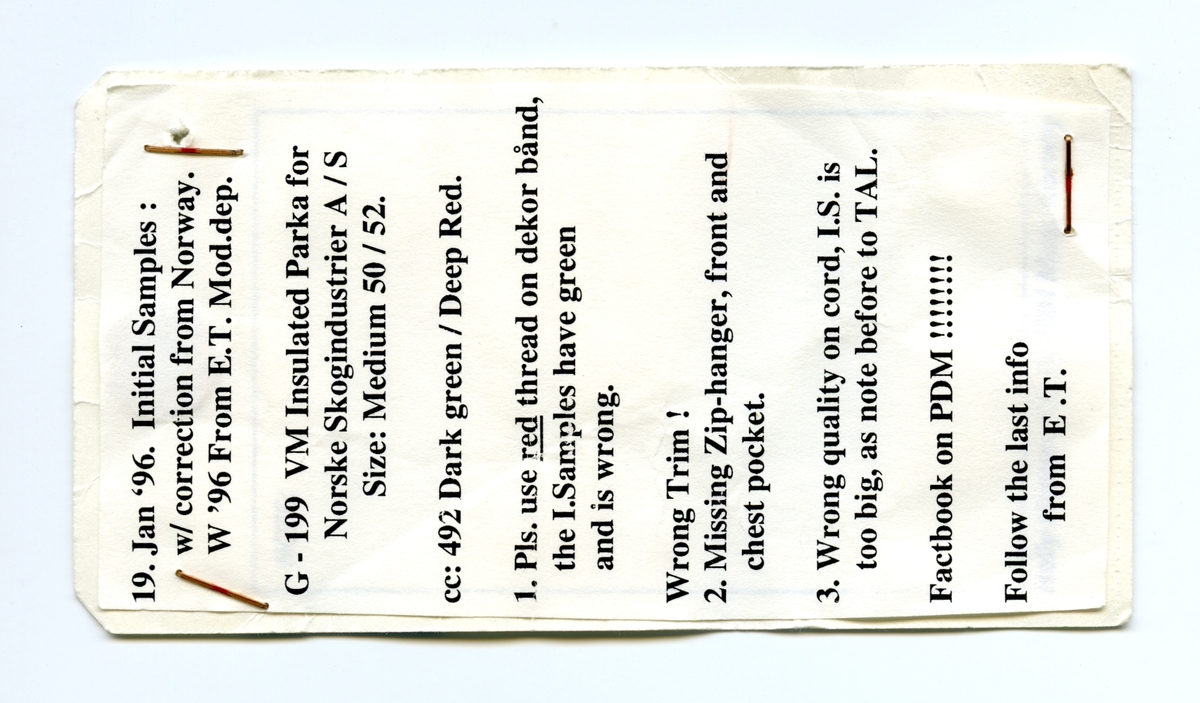 19. Jan ‘96.  Initial Samples :
w/ correction from Norway.
W ’96 From E.T. Mod.dep.
G - 199  VM Insulated Parka for
Norske Skogindustrier A / S
Size: Medium 50 / 52.
cc: 492 Dark green / Deep Red.
1. Pls. use red thread on dekor bånd,
the I.Samples have green
and is wrong.
Wrong Trim !
2. Missing Zip-hanger, front and
chest pocket.
3. Wrong quality on cord, I.S. is
too big, as note before to TAL.
Factbook on PDM !!!!!!!!
Follow the last info
from  E .T.